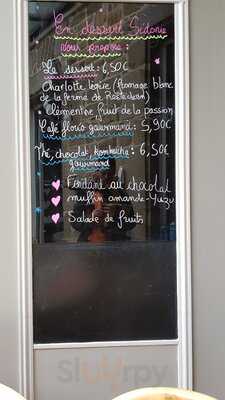 En dessert Sidonie
Vous propose :
Le dessert : 6,50€
Charlotte légère (fromage blanc
de la ferme de
Clémentine fruit de la passion
Café gourmand : 5,90€
Thé, chocolat, kombucha : 6,50€
gourmand
Fondant au chocolat
muffin amande-Yuzu
Salade de fruits
Sluurpy